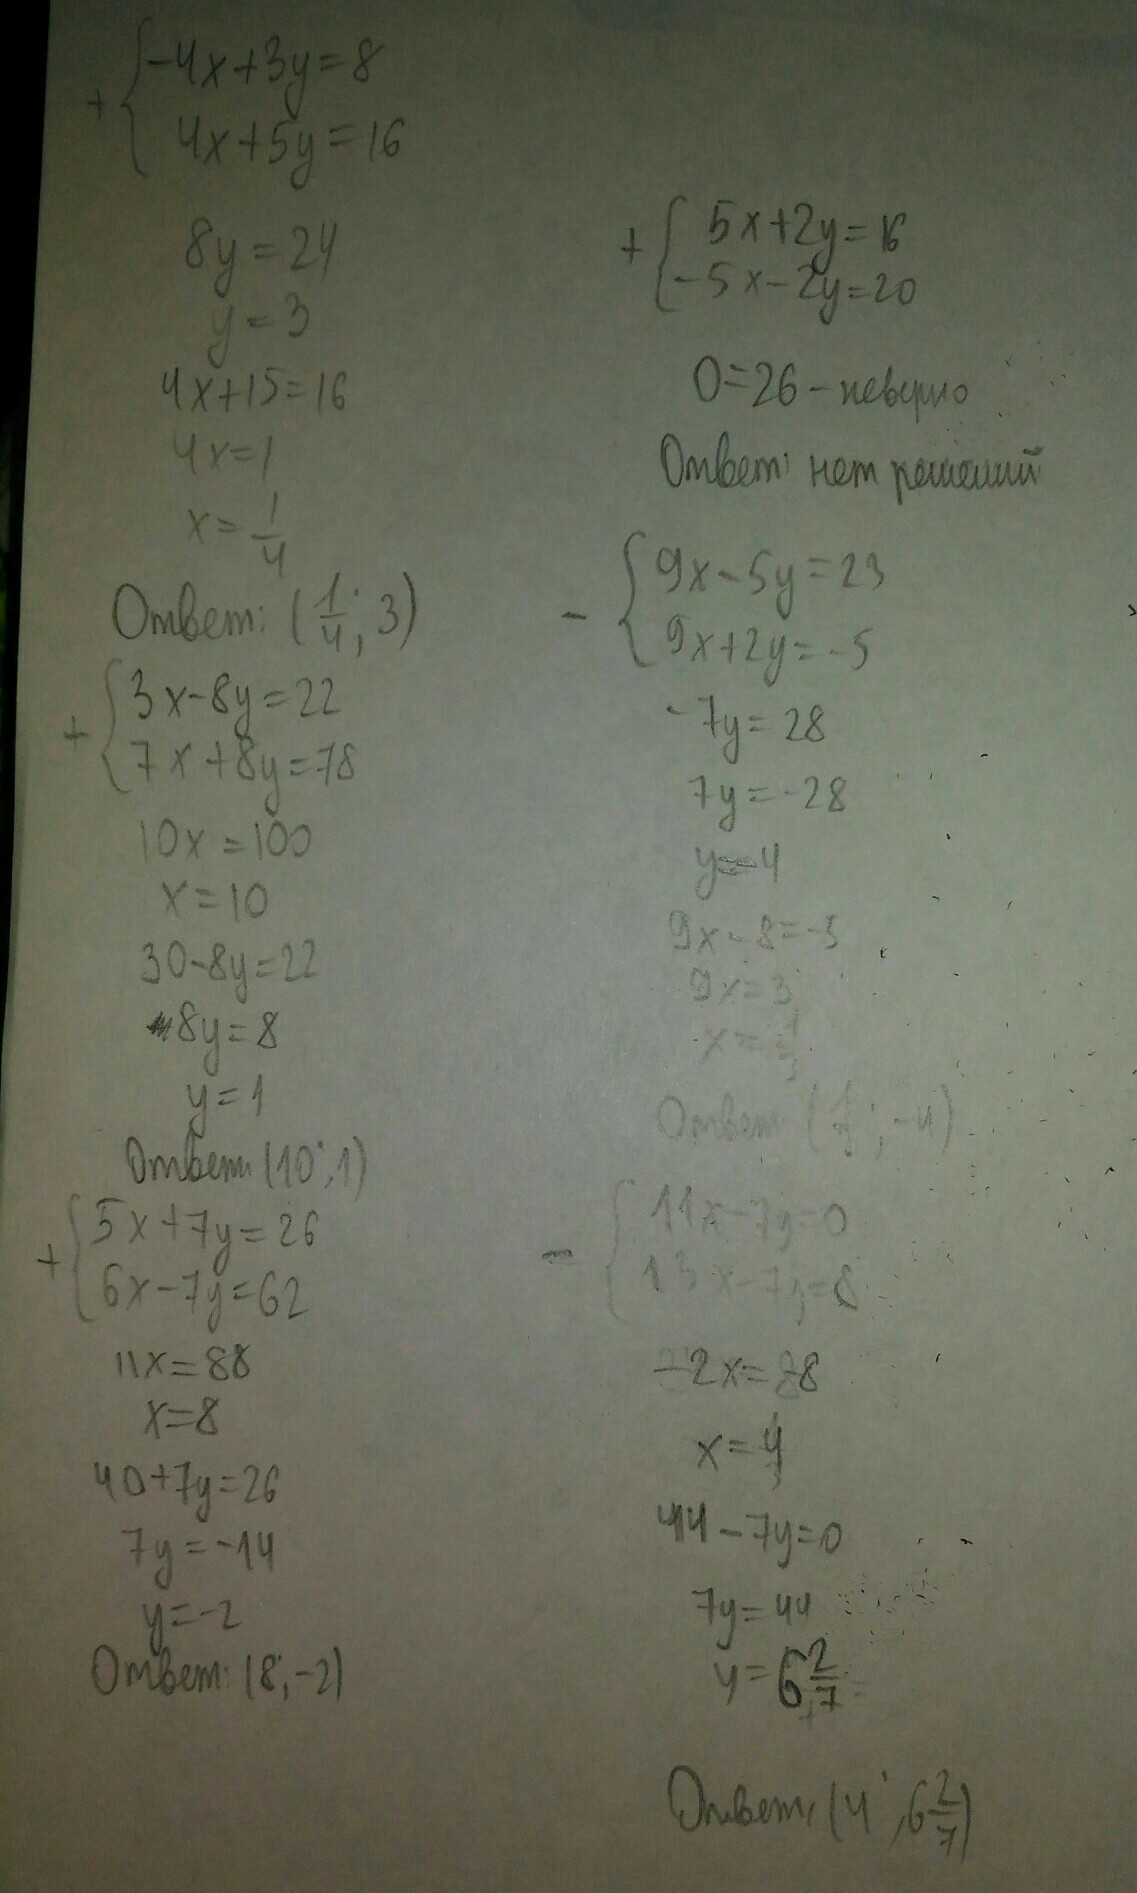 + { -4x+3y=8
4x+5y=16
8y=24
y=3
4x+15=16
4x=1
x=1/4
Ответ: (1/4; 3)
+ { 3x-8y=22
7x+8y=78
10x=100
x=10
30-8y=22
8y=8
y=1
Ответ: (10;1)
+ { 5x+7y=26
6x-7y=62
11x=88
x=8
40+7y=26
7y=-14
y=-2
Ответ: (8;-2)
+ { 5x+2y=16
-5x-2y=20
0=26-неверно
Ответ: нет решений
- { 9x-5y=23
9x+2y=-5
-7y=28
7y=-28
y=-4
9x-8=-5
9x=3
x=1/3
Ответ: ( ; -4)
- { 11x-7y=0
13x-7y=8
-2x=-8
x=4
44-7y=0
7y=44
y=6 2/7
Ответ: (4; 6 2/7)